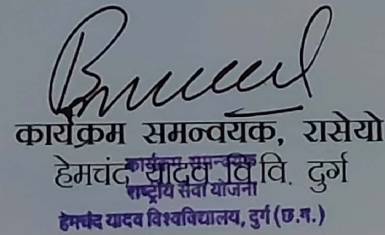 कार्यक्रम समन्वयक, रासेयो
हेमचंद यादव वि.वि. दुर्ग
कार्यक्रम समन्वयक
राष्ट्रीय सेवा योजना
हेमचंद यादव विश्वविद्यालय, दुर्ग (छ.ग.)